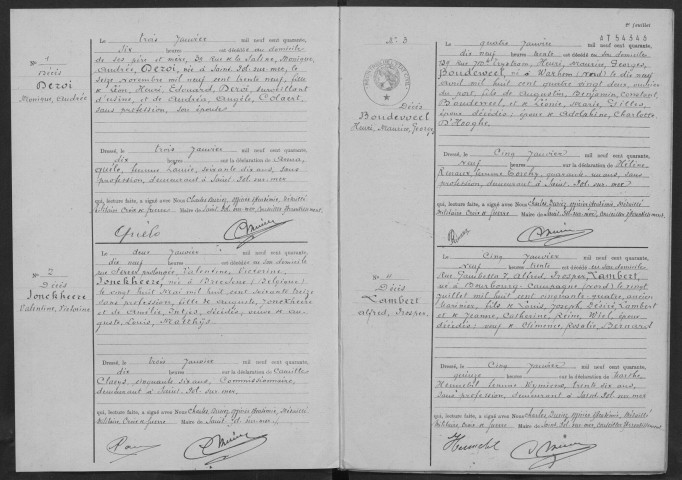 N° 1
Décès
Dezoi
Monique, Andrée
Le trois Janvier mil neuf cent quarante,
six heure est décédée au domicile
de ses père et mère, rue de la Saline, Monique,
Andrée Dezoi, née à Saint Pol-sur-mer, le
seize Novembre mil neuf cent trente neuf, fille
de Léon, Henri, Edouard Dezoi, surveillant
d'usine, et de Andréa, Angèle, Colaert,
sans profession, son épouse
Dressé, le trois Janvier mil neuf cent quarante,
dix heure sur la déclaration de
Quélo, femme Louis, soixante dix ans, sans
profession, demeurant à Saint Pol-sur-mer
qui, lecture faite, a signé avec Nous Charles Officier d'Académie, Médaille
Militaire Croix de Guerre Maire de Saint Pol sur mer, Conseiller d'Arrondissement.
Quélo
N° 2
Décès
Jonckheere
Valentine, Victorine
Le deux Janvier mil neuf cent quarante,
dix neuf heure est décédée en son domicile
rue prolongée, Valentine, Victorine,
Jonckheere, née à (Belgique)
le vingt huit Mai mil huit cent soixante treize
sans profession, fille de Auguste, Jonckheere
et de Amélie, décédés, veuve de Auguste,
Louis, Matthys
Dressé, le trois Janvier mil neuf cent quarante,
dix heure sur la déclaration de Camille
Claeys, soixante six ans, Commissionnaire,
demeurant à Saint Pol sur mer,
qui, lecture faite, a signé avec Nous Charles Officier d'Académie, Médaille
Militaire Croix de Guerre Maire de Saint Pol sur mer
1er feuillet
AT54345
N° 3
Décès
Boudeweel
Henri, Maurice, Georges
Le quatre Janvier mil neuf cent quarante,
dix neuf heure trente est décédé en son domicile
Henri, Maurice, Georges,
Boudeweel, né à Warhem (Nord) le dix neuf
Avril mil huit cent quatre vingt deux, ouvrier
au port, fils de Augustin, Benjamin, Constant
Boudeweel et de Léonie, Marie,
époux décédés; époux de Adolphine, Charlotte
D'Hooghe
Dressé, le Cinq Janvier mil neuf cent quarante,
neuf heure sur la déclaration de Hélène,
Renaux, femme ans, sans
profession, demeurant à Saint Pol sur mer
qui, lecture faite, a signé avec Nous Charles Officier d'Académie, Médaille
Militaire Croix de Guerre Maire de Saint Pol sur mer, Conseiller d'Arrondissement
N° 4
Décès
Lambert
Alfred, Prosper
Le Cinq Janvier mil neuf cent quarante,
neuf heure trente est décédé en son domicile
Rue Gambetta 7, Alfred, Prosper, Lambert,
né à Bourbourg-Campagne (Nord) le vingt
Juillet mil huit cent cinquante quatre, ancien
fils de Louis, Joseph, Désiré Lambert
et de Jeanne, Catherine, Reine, époux
décédés; veuf de Clémence, Rosalie, Bernard
Dressé, le Cinq Janvier mil neuf cent quarante,
quinze heure sur la déclaration de Marthe,
Hennebel femme trente six ans,
sans profession, demeurant à Saint Pol sur mer
qui, lecture faite, a signé avec Nous Charles Officier d'Académie, Médaille
Militaire Croix de Guerre Maire de Saint Pol sur mer, Conseiller d'Arrondissement
Hennebel